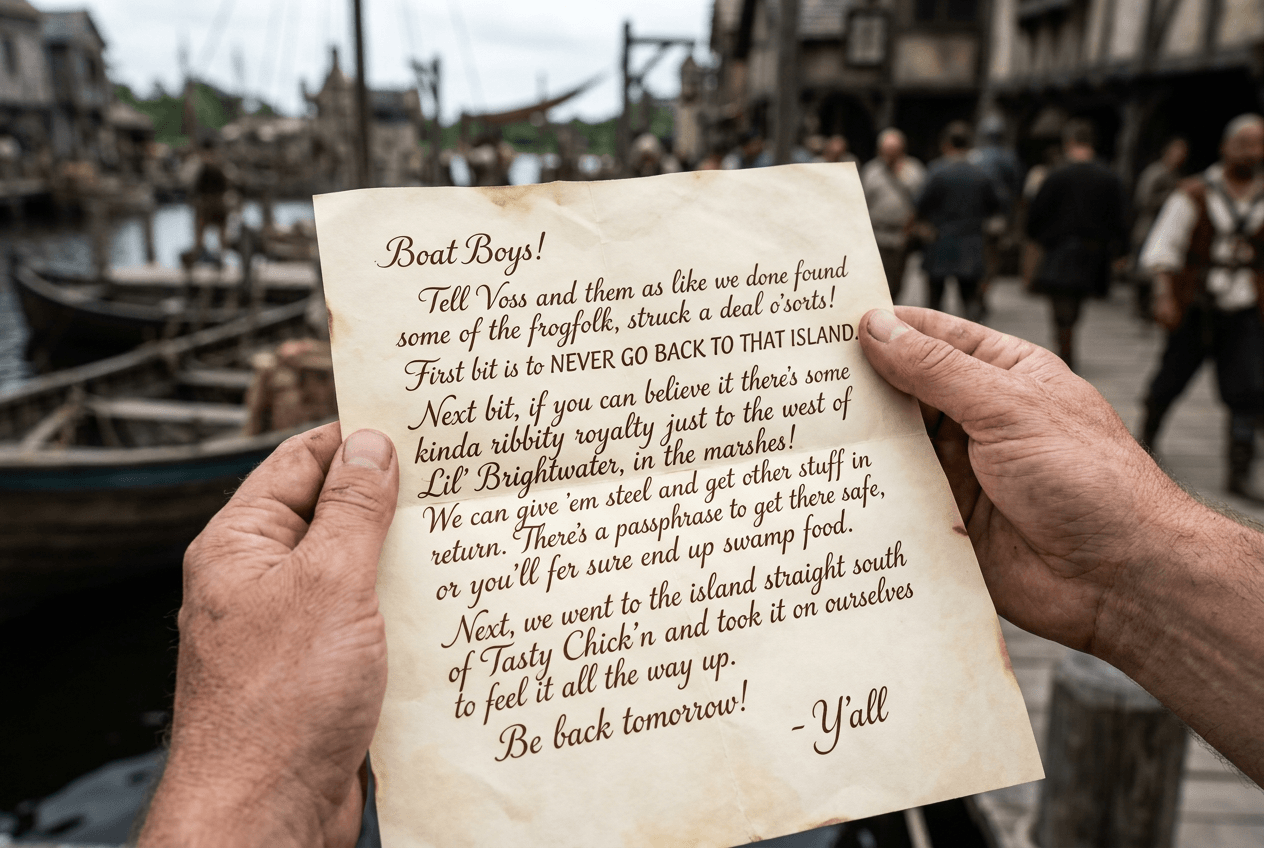 Boat Boys!
Tell Voss and them as like we done found
some of the frogfolk, struck a deal o'sorts!
First bit is to NEVER GO BACK TO THAT ISLAND.
Next bit, if you can believe it there's some
kinda ribbity royalty just to the west of
Lil' Brightwater, in the marshes!
We can give 'em steel and get other stuff in
return. There's a passphrase to get there safe,
or you'll fer sure end up swamp food.
Next, we went to the island straight south
of Tasty Chick'n and took it on ourselves
to feel it all the way up.
Be back tomorrow!
- Y'all